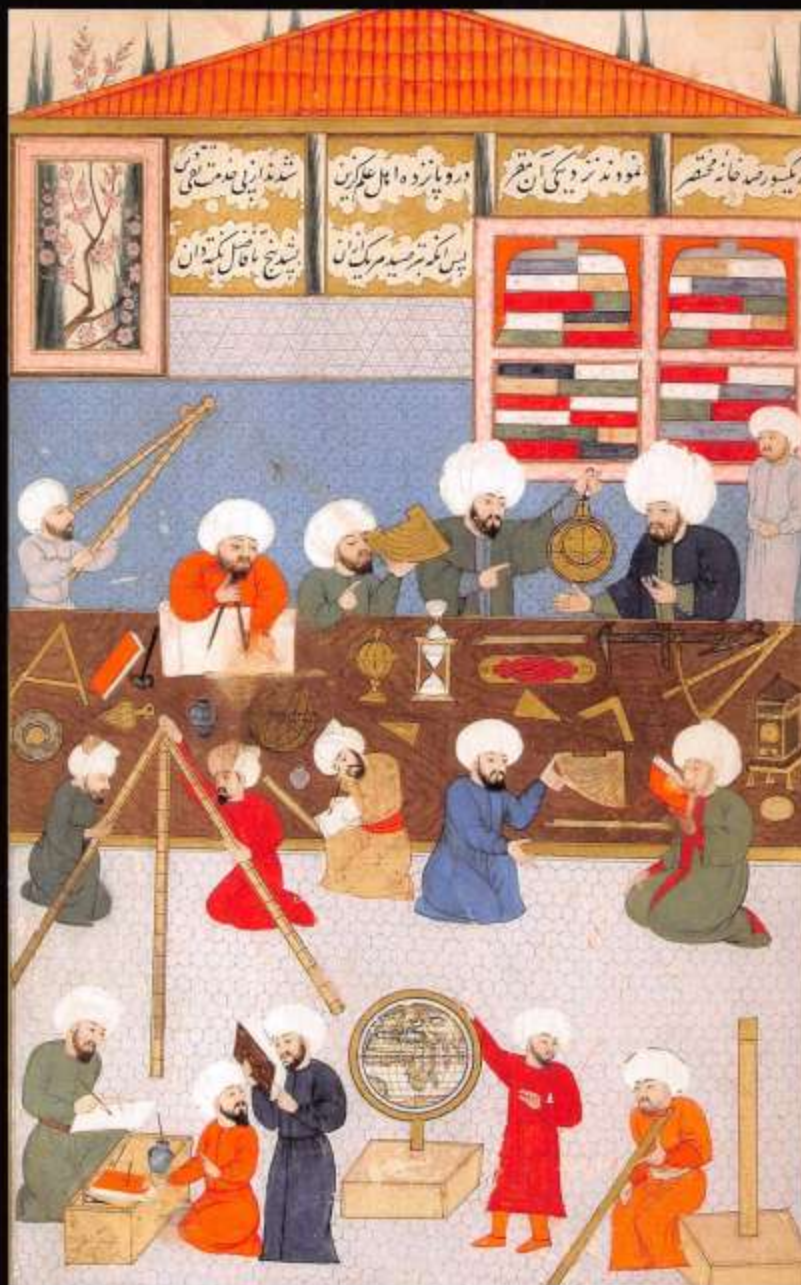 بیکسو رصد خانه مختصر
نمودند نزدیکی آن مقر
درو پانزده اهل علم گزین
شدند از پی خدمت تقی دین
پس آنکه بترصید هر یک ازان
پنج با فاضل نکته دان